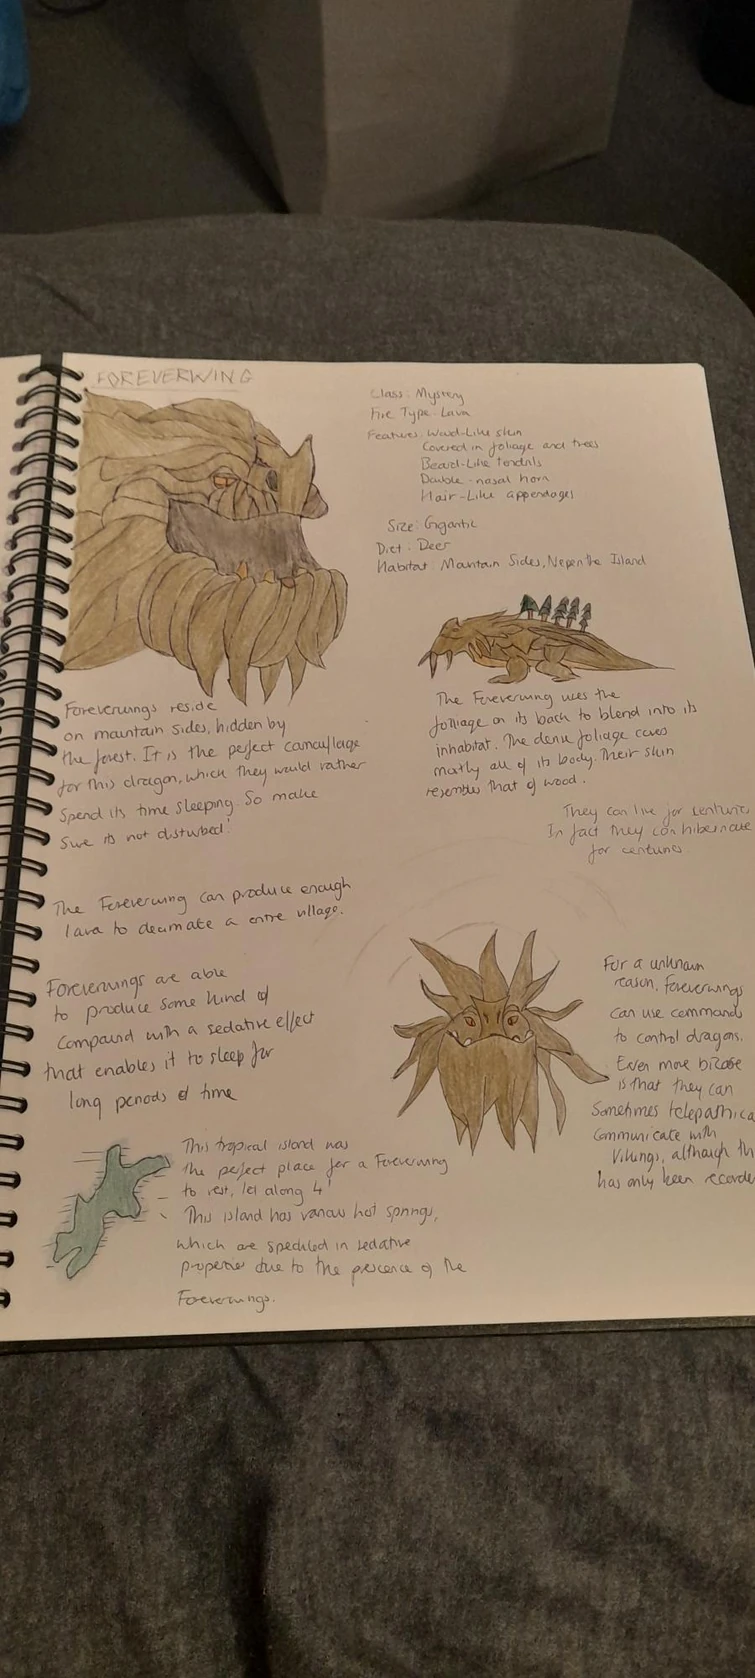 FOREVERWING
Class: Mystery
Fire Type: Lava
Features: Wood-Like skin
Covered in foliage and trees
Beard-Like tendrils
Double-nasal horn
Hair-Like appendages
Size: Gigantic
Diet: Deer
Habitat: Mountain Sides, Nepenthe Island
Foreverwings reside
on mountain sides, hidden by
the forest. It is the perfect camouflage
for this dragon, which they would rather
spend its time sleeping. So make
sure its not disturbed!
The Foreverwing uses the
folliage on its back to blend into its
inhabitat. The dense foliage covers
mostly all of its body. Their skin
resembles that of wood.
They can live for centuries
In fact they can hibernate
for centuries.
The Foreverwing can produce enough
lava to decimate a entire village.
Foreverwings are able
to produce some kind of
compound with a sedative effect
that enables it to sleep for
long periods of time
For a unknown
reason, Foreverwings
can use commands
to control dragons.
Even more
is that they can
sometimes
communicate with
Vikings, although
has only been
This tropical island was
the perfect place for a Foreverwing
to rest, let along 4!
This island has various hot springs,
which are in sedative
properties due to the presence of the
Foreverwings.